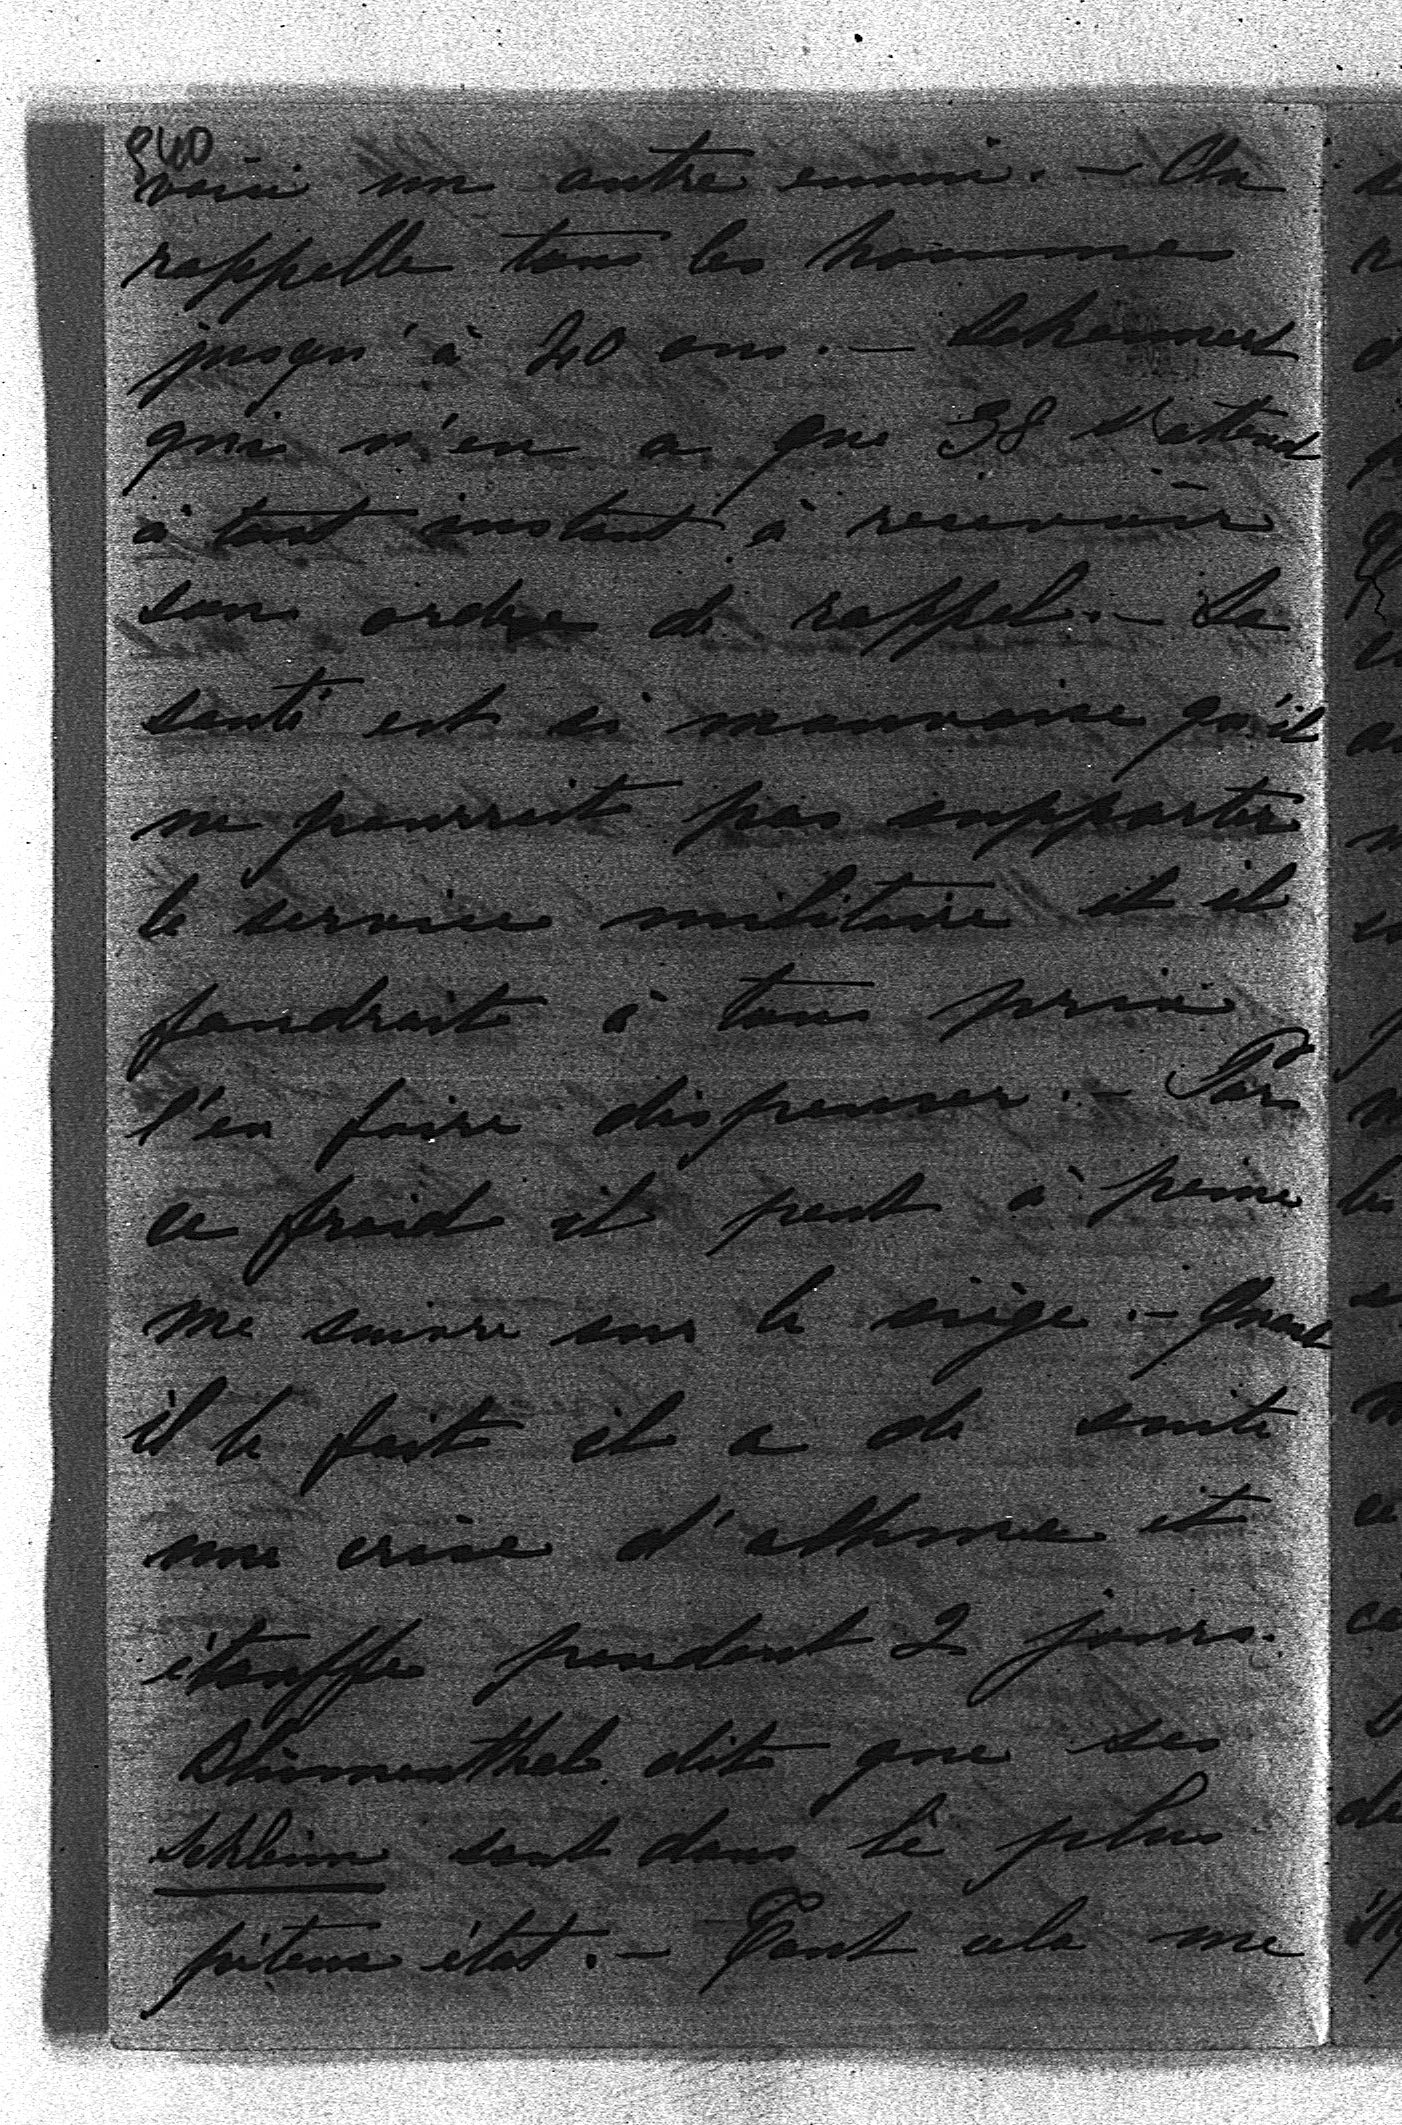 940
voici un autre ennui. – On
rappelle tous les hommes
jusqu'à 40 ans. –
qui n'en a que 38 s'attend
à tout instant à recevoir
son ordre de rappel. – Sa
santé est si mauvaise qu'il
ne pourrait pas supporter
le service militaire et il
faudrait à tous prix
l'en faire dispenser. – Par
ce froid il peut à peine
me suivre sur le siège. – Quand
il le fait il a de suite
une crise d'asthme et
étouffe pendant 2 jours.
Blumenthal dit que ses
sont dans le plus
piteux état. – Tout cela me